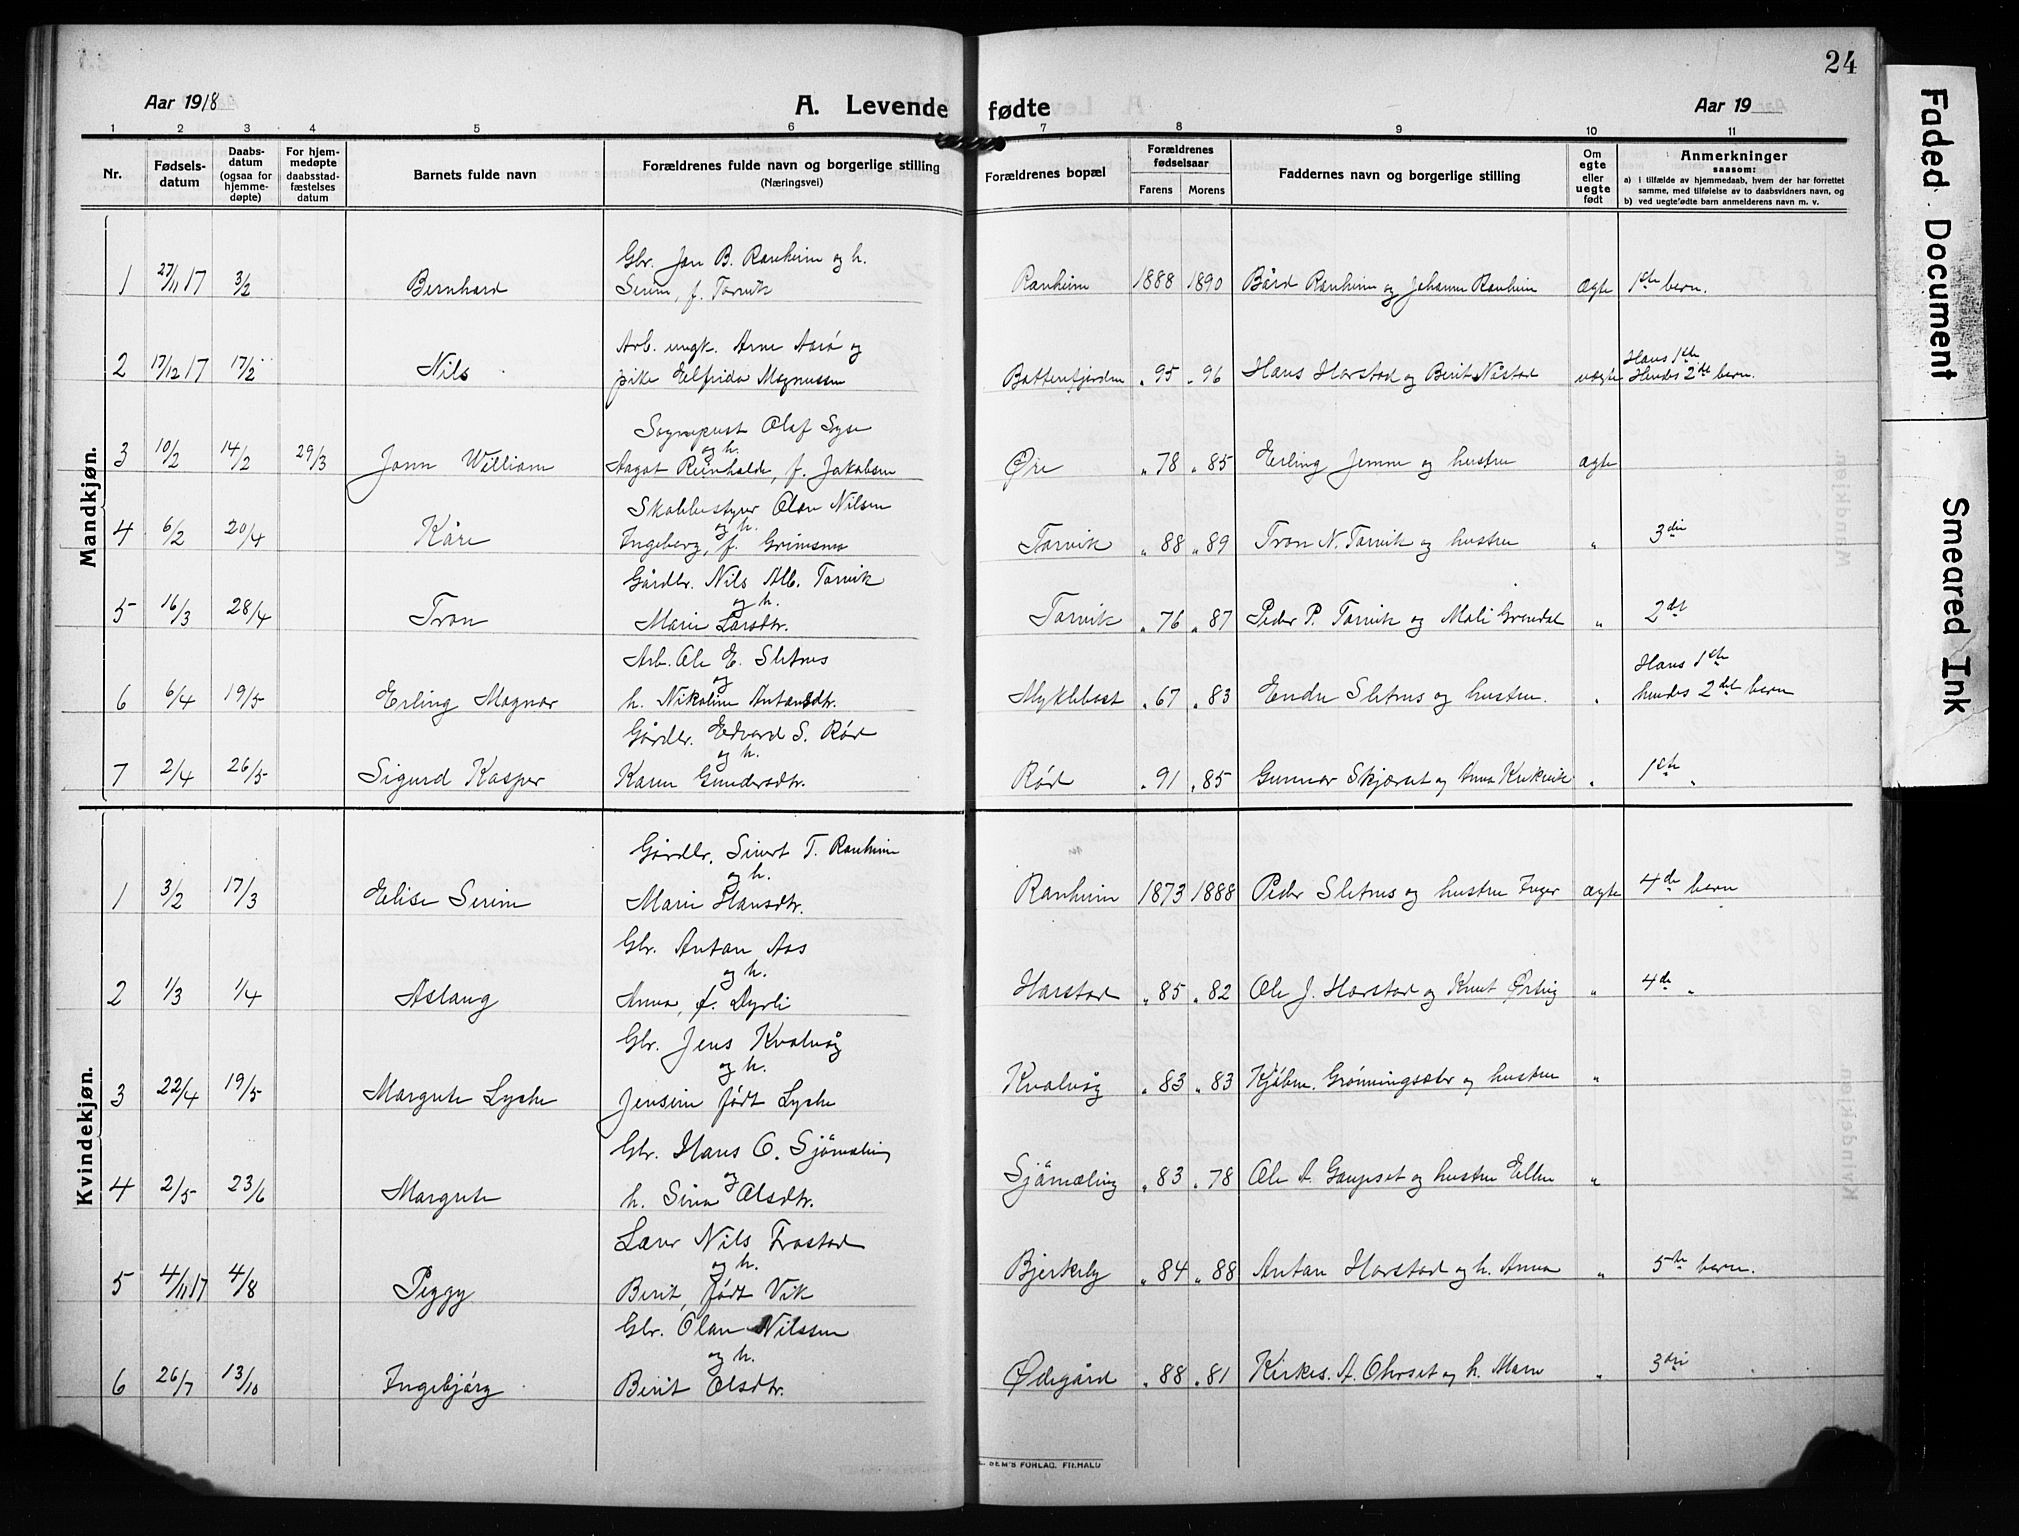 24
Aar 1918
A. Levende fødte
Aar 19
1 2 3 4 5 6 7 8 9 10 11
Nr.
Fødsels-
datum
Daabs-
datum
(ogsaa for
hjemme-
døpte)
For hjem-
medøpte
daabsstad-
fæstelses
datum
Barnets fulde navn
Forældrenes fulde navn og borgerlige stilling
(Næringsvei)
Forældrenes bopæl
Forældrenes
fødselsaar
Farens Morens
Faddernes navn og borgerlige stilling
Om
egte
eller
uegte
født
Anmerkninger
saasom:
a) i tilfælde av hjemmedaab, hvem der har forrettet
samme, med tilføielse av to daabsvidners navn, og
b) ved uegtefødte barn anmelderens navn m. v.
Mandkjøn.
Gbr. Jon B. Ranheim og h.
1 27/11 17 3/2 Bernhard Serine, f. Torvik Ranheim 1888 1890 Bård Ranheim og Johanna Ranheim ægte 1ste barn.
Arb. ungk. Arne Aarö og Hans 1ste
2 17/12 17 17/2 Nils pike Elfrida Magnussen Battenfjorden " 95 " 96 Hans Harstad og Berit Nåstad uægte Hendes 2det barn.
Sogneprest Olaf Syse
og h.
3 10/2 14/2 29/3 John William Aagot Reinholde, f. Jakobsen Øre " 78 " 85 Erling Jemme og hustru ægte
Skolebestyrer Olav Nilsen
og h.
4 6/2 20/4 Kåre Ingeborg, f. Grimsmo Torvik " 88 " 89 Tron N. Torvik og hustru " 3die
Gårdbr. Nils Alb. Torvik
og h.
5 16/3 28/4 Tron Marie Larsdtr. Torvik " 76 " 87 Peder P. Torvik og Mali Grendal " 2det
Arb. Ole E. Sletnes Hans 1ste
og
6 6/4 19/5 Erling Magnar h. Nikoline Antonsdtr. Myklebost " 67 " 83 Endre Sletnes og hustru. " hendes 2det barn
Gårdbr. Edvard S. Röd
og h.
7 2/4 26/5 Sigurd Kasper Karen Gundersdtr. Röd " 91 " 85 Gunnar Skjærset og Anna Kirkvik " 1ste "
Kvindekjøn.
Gårdbr. Sivert T. Ranheim
og h.
1 3/2 17/3 Elise Serine Marie Hansdtr. Ranheim 1873 1888 Peder Sletnes og hustru Inger ægte 4de barn
Gbr. Anton Aas
og h.
2 1/3 1/4 Aslaug Anna, f. Dyrli Harstad " 85 " 82 Ole J. Harstad og Knut " 4de "
Gbr. Jens Kvalvåg
og h.
3 22/4 19/5 Margrete Lyshe Jensine født Lyshe Kvalvåg " 83 " 83 Kjöbm. Grönningsæter og hustru "
Gbr. Hans O. Sjömæling
og
4 2/5 23/6 Margrete h. Sina Olsdtr. Sjömæling " 83 " 78 Ole A. Gaupset og hustru Ellen "
Lærer Nils Frostad
og h.
5 4/11 17 4/8 Peggy Berit, født Vik Bjerkely " 84 " 88 Anton Harstad og h. Anna " 5te barn.
Gbr. Olav Nilssen
og h.
6 26/7 13/10 Ingebjörg Berit Olsdtr. Ødegård " 88 " 81 Kirkes. A. Ohrset og h. Marie " 3die
SEM'S FORLAG. FR.HALD
Faded Document
Smeared Ink